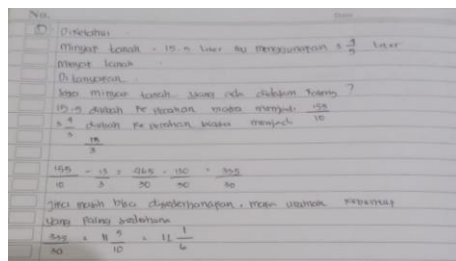 No.
① Diketahui
minyak tanah = 15.5 liter ibu menggunakan liter
minyak tanah
Ditanyakan
sisa minyak tanah yang ada didalam ?
15.5 diubah ke pecahan biasa menjadi 155/10
diubah ke pecahan biasa menjadi
13/3
155/10 - 13/3 = 465/30 - 130/30 = 335/30
jika masih bisa disederhanakan, maka ubahlah
yang paling sederhana
335/30 = 11 5/10 = 11 1/6